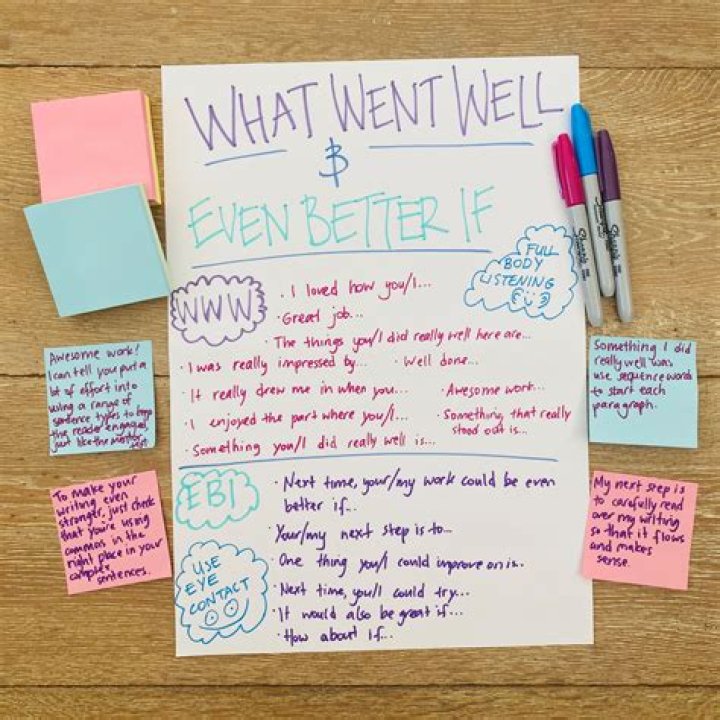 WHAT WENT WELL
&
EVEN BETTER IF
FULL
BODY
LISTENING
WWW
· I loved how you/I...
· Great job...
· The things you/I did really well here are...
· I was really impressed by... · Well done...
· It really drew me in when you... · Awesome work...
· I enjoyed the part where you/I... · Something that really
stood out is...
· Something you/I did really well is...
EBI
· Next time, your/my work could be even
better if...
· Your/my next step is to...
· One thing you/I could improve on is..
· Next time, you/I could try...
· It would also be great if...
· How about if...
USE
EYE
CONTACT
Awesome work!
I can tell you put a
lot of effort into
using a range of
sentence types to keep
the reader engaged,
just like the mentor
text
To make your
writing even
stronger, just check
that you're using
commas in the
right place in your
complex
sentences.
Something I did
really well was
use sequence words
to start each
paragraph.
My next step is
to carefully read
over my writing
so that it flows
and makes
sense.
Sharpie
Sharpie
Sharpie